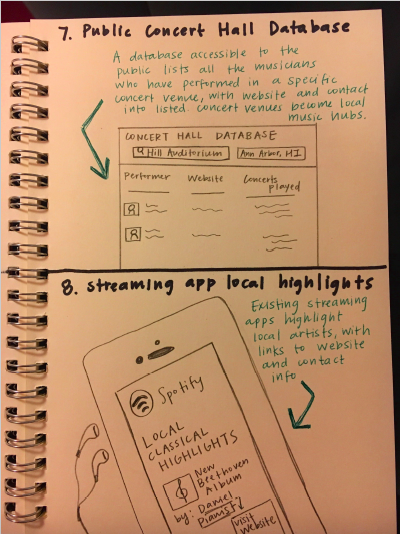 7. Public Concert Hall Database
A database accessible to the
public lists all the musicians
who have performed in a specific
concert venue, with website and contact
info listed. Concert venues become local
music hubs.
CONCERT HALL DATABASE
Hill Auditorium Ann Arbor, MI
Performer Website Concerts
played
8. Streaming app local highlights
Existing streaming
apps highlight
local artists, with
links to website
and contact
info
Spotify
LOCAL
CLASSICAL
HIGHLIGHTS
New
Beethoven
Album
by: Daniel
Pianist
visit
website